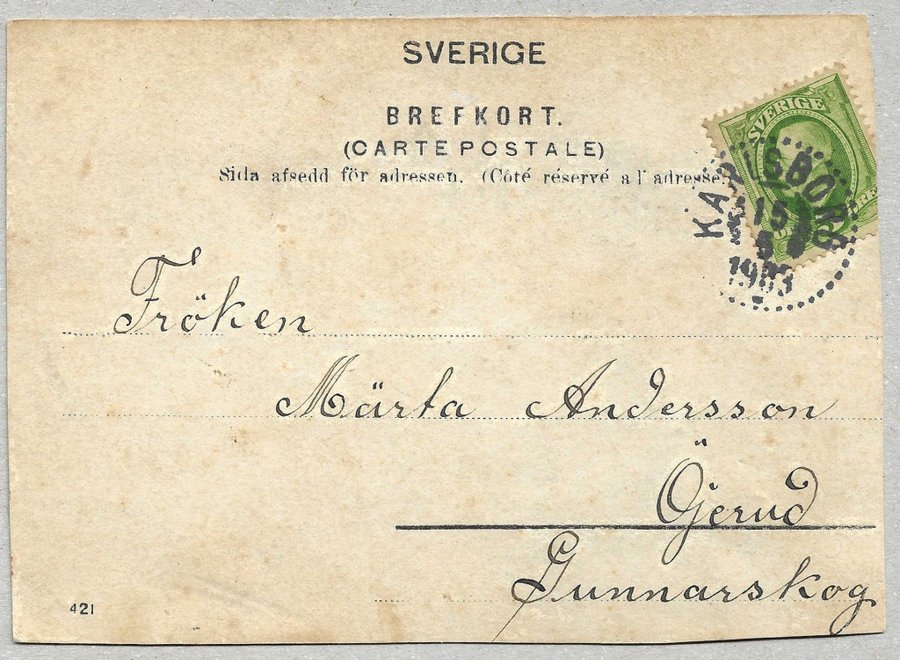 SVERIGE
BREFKORT.
(CARTE POSTALE)
Sida afsedd för adressen. (Côté réservé a l'adresse.
SVERIGE
KARLSBORG
15
5
1903
Fröken
Märta Andersson
Öjerud
Gunnarskog
421